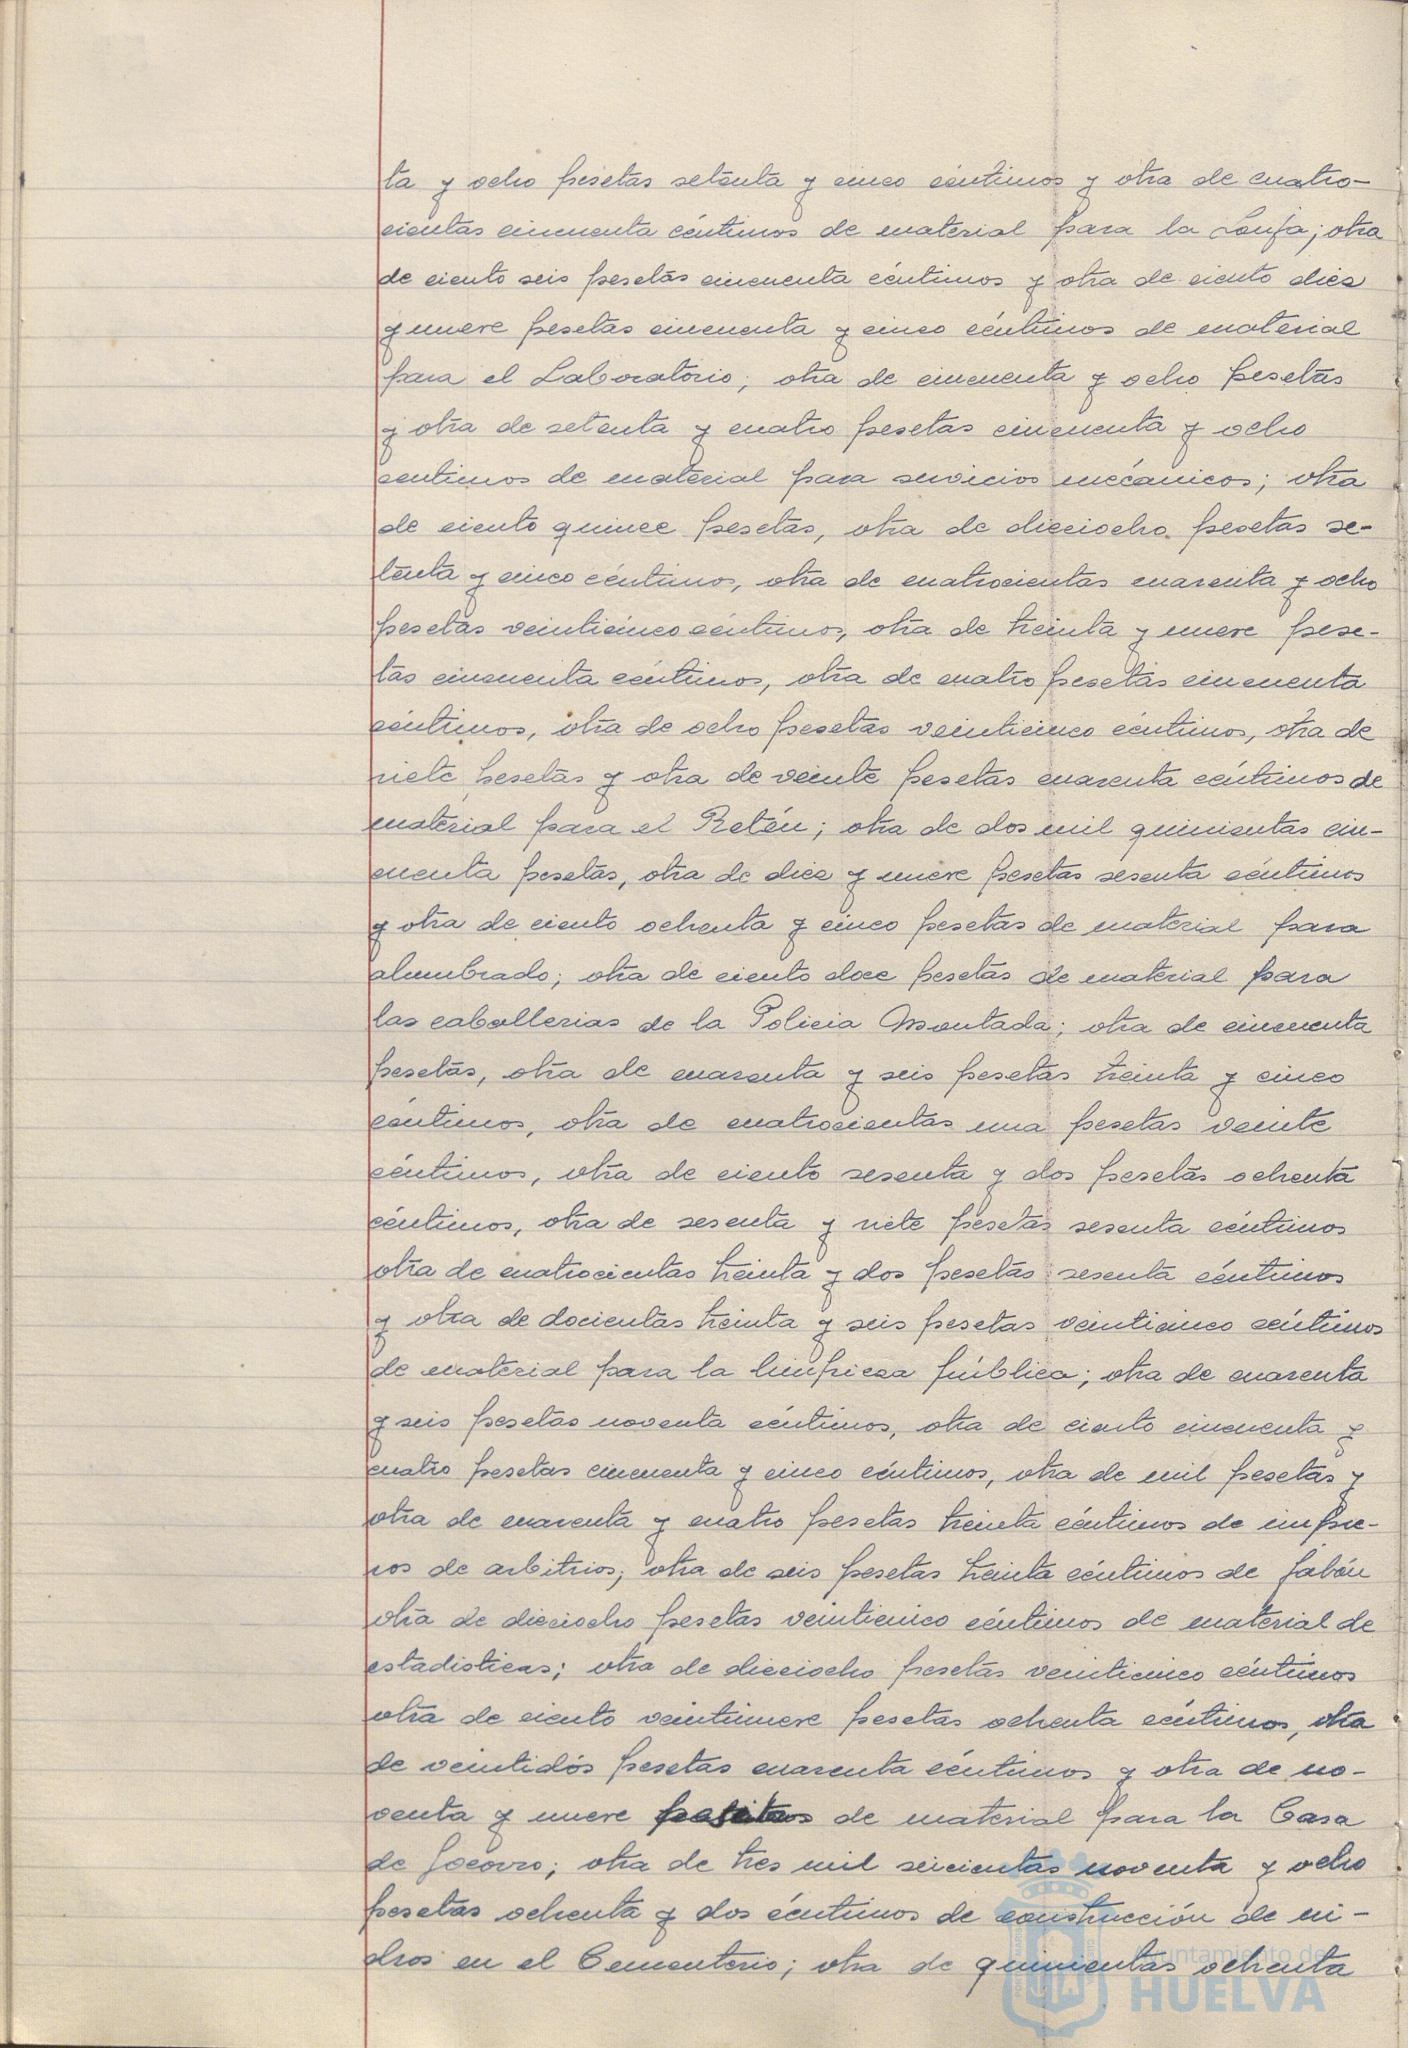 ta y ocho pesetas setenta y cinco céntimos y otra de cuatro-
cientas cincuenta céntimos de material para la Lonja; otra
de ciento seis pesetas cincuenta céntimos y otra de ciento diez
y nueve pesetas cincuenta y cinco céntimos de material
para el Laboratorio; otra de cincuenta y ocho pesetas
y otra de setenta y cuatro pesetas cincuenta y ocho
centimos de material para servicios mecánicos; otra
de ciento quince pesetas, otra de dieciocho pesetas se-
tenta y cinco céntimos, otra de cuatrocientas cuarenta y ocho
pesetas veinticinco céntimos, otra de treinta y nueve pese-
tas cincuenta céntimos, otra de cuatro pesetas cincuenta
céntimos, otra de ocho pesetas veinticinco céntimos, otra de
siete pesetas y otra de veinte pesetas cuarenta céntimos de
material para el Retén; otra de dos mil quinientas cin-
cuenta pesetas, otra de diez y nueve pesetas sesenta céntimos
y otra de ciento ochenta y cinco pesetas de material para
alumbrado; otra de ciento doce pesetas de material para
las caballerias de la Policia Montada; otra de cincuenta
pesetas, otra de cuarenta y seis pesetas treinta y cinco
céntimos, otra de cuatrocientas una pesetas veinte
céntimos, otra de ciento sesenta y dos pesetas ochenta
céntimos, otra de sesenta y siete pesetas sesenta céntimos
otra de cuatrocientas treinta y dos pesetas sesenta céntimos
y otra de docientas treinta y seis pesetas veinticinco céntimos
de material para la limpieza pública; otra de cuarenta
y seis pesetas noventa céntimos, otra de ciento cincuenta y
cuatro pesetas cincuenta y cinco céntimos, otra de mil pesetas y
otra de cuarenta y cuatro pesetas treinta céntimos de impre-
sos de arbitrios; otra de seis pesetas treinta céntimos de jabón
otra de dieciocho pesetas veinticinco céntimos de material de
estadisticas; otra de dieciocho pesetas veinticinco céntimos
otra de ciento veintinueve pesetas ochenta céntimos, otra
de veintidós pesetas cuarenta céntimos y otra de no-
venta y nueve pesetas de material para la Casa
de Socorro; otra de tres mil seicientas noventa y ocho
pesetas ochenta y dos céntimos de construcción de ni-
chos en el Cementerio; otra de quinientas ochenta
Ayuntamiento de
HUELVA